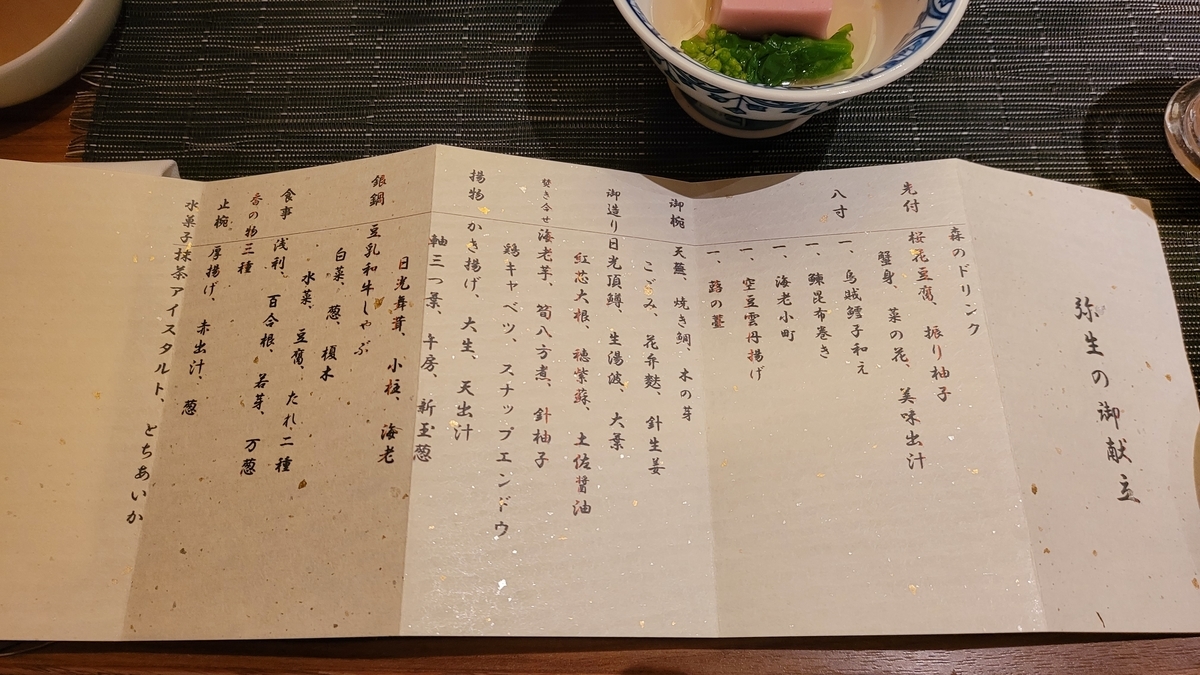 弥生の御献立
森のドリンク
先付 桜花豆腐、振り柚子
蟹身、菜の花、美味出汁
八寸 一、烏賊鱈子和え
一、鰊昆布巻き
一、海老小町
一、空豆雲丹揚げ
一、蕗の薹
御椀 天蕪、焼き鯛、木の芽
こごみ、花弁麩、針生姜
御造り 日光頂鱒、生湯波、大葉
紅芯大根、穂紫蘇、土佐醤油
焚き合せ 海老芋、筍八方煮、針柚子
鶏キャベツ、スナップエンドウ
揚物 かき揚げ、大生、天出汁
軸三つ葉、牛房、新玉葱
銀鍋 豆乳和牛しゃぶ
日光舞茸、小柱、海老
白菜、葱、榎木
水菜、豆腐、たれ二種
食事 浅利、百合根、若芽、万葱
香の物 三種
止椀 厚揚げ、赤出汁、葱
水菓子 抹茶アイスタルト、とちあいか